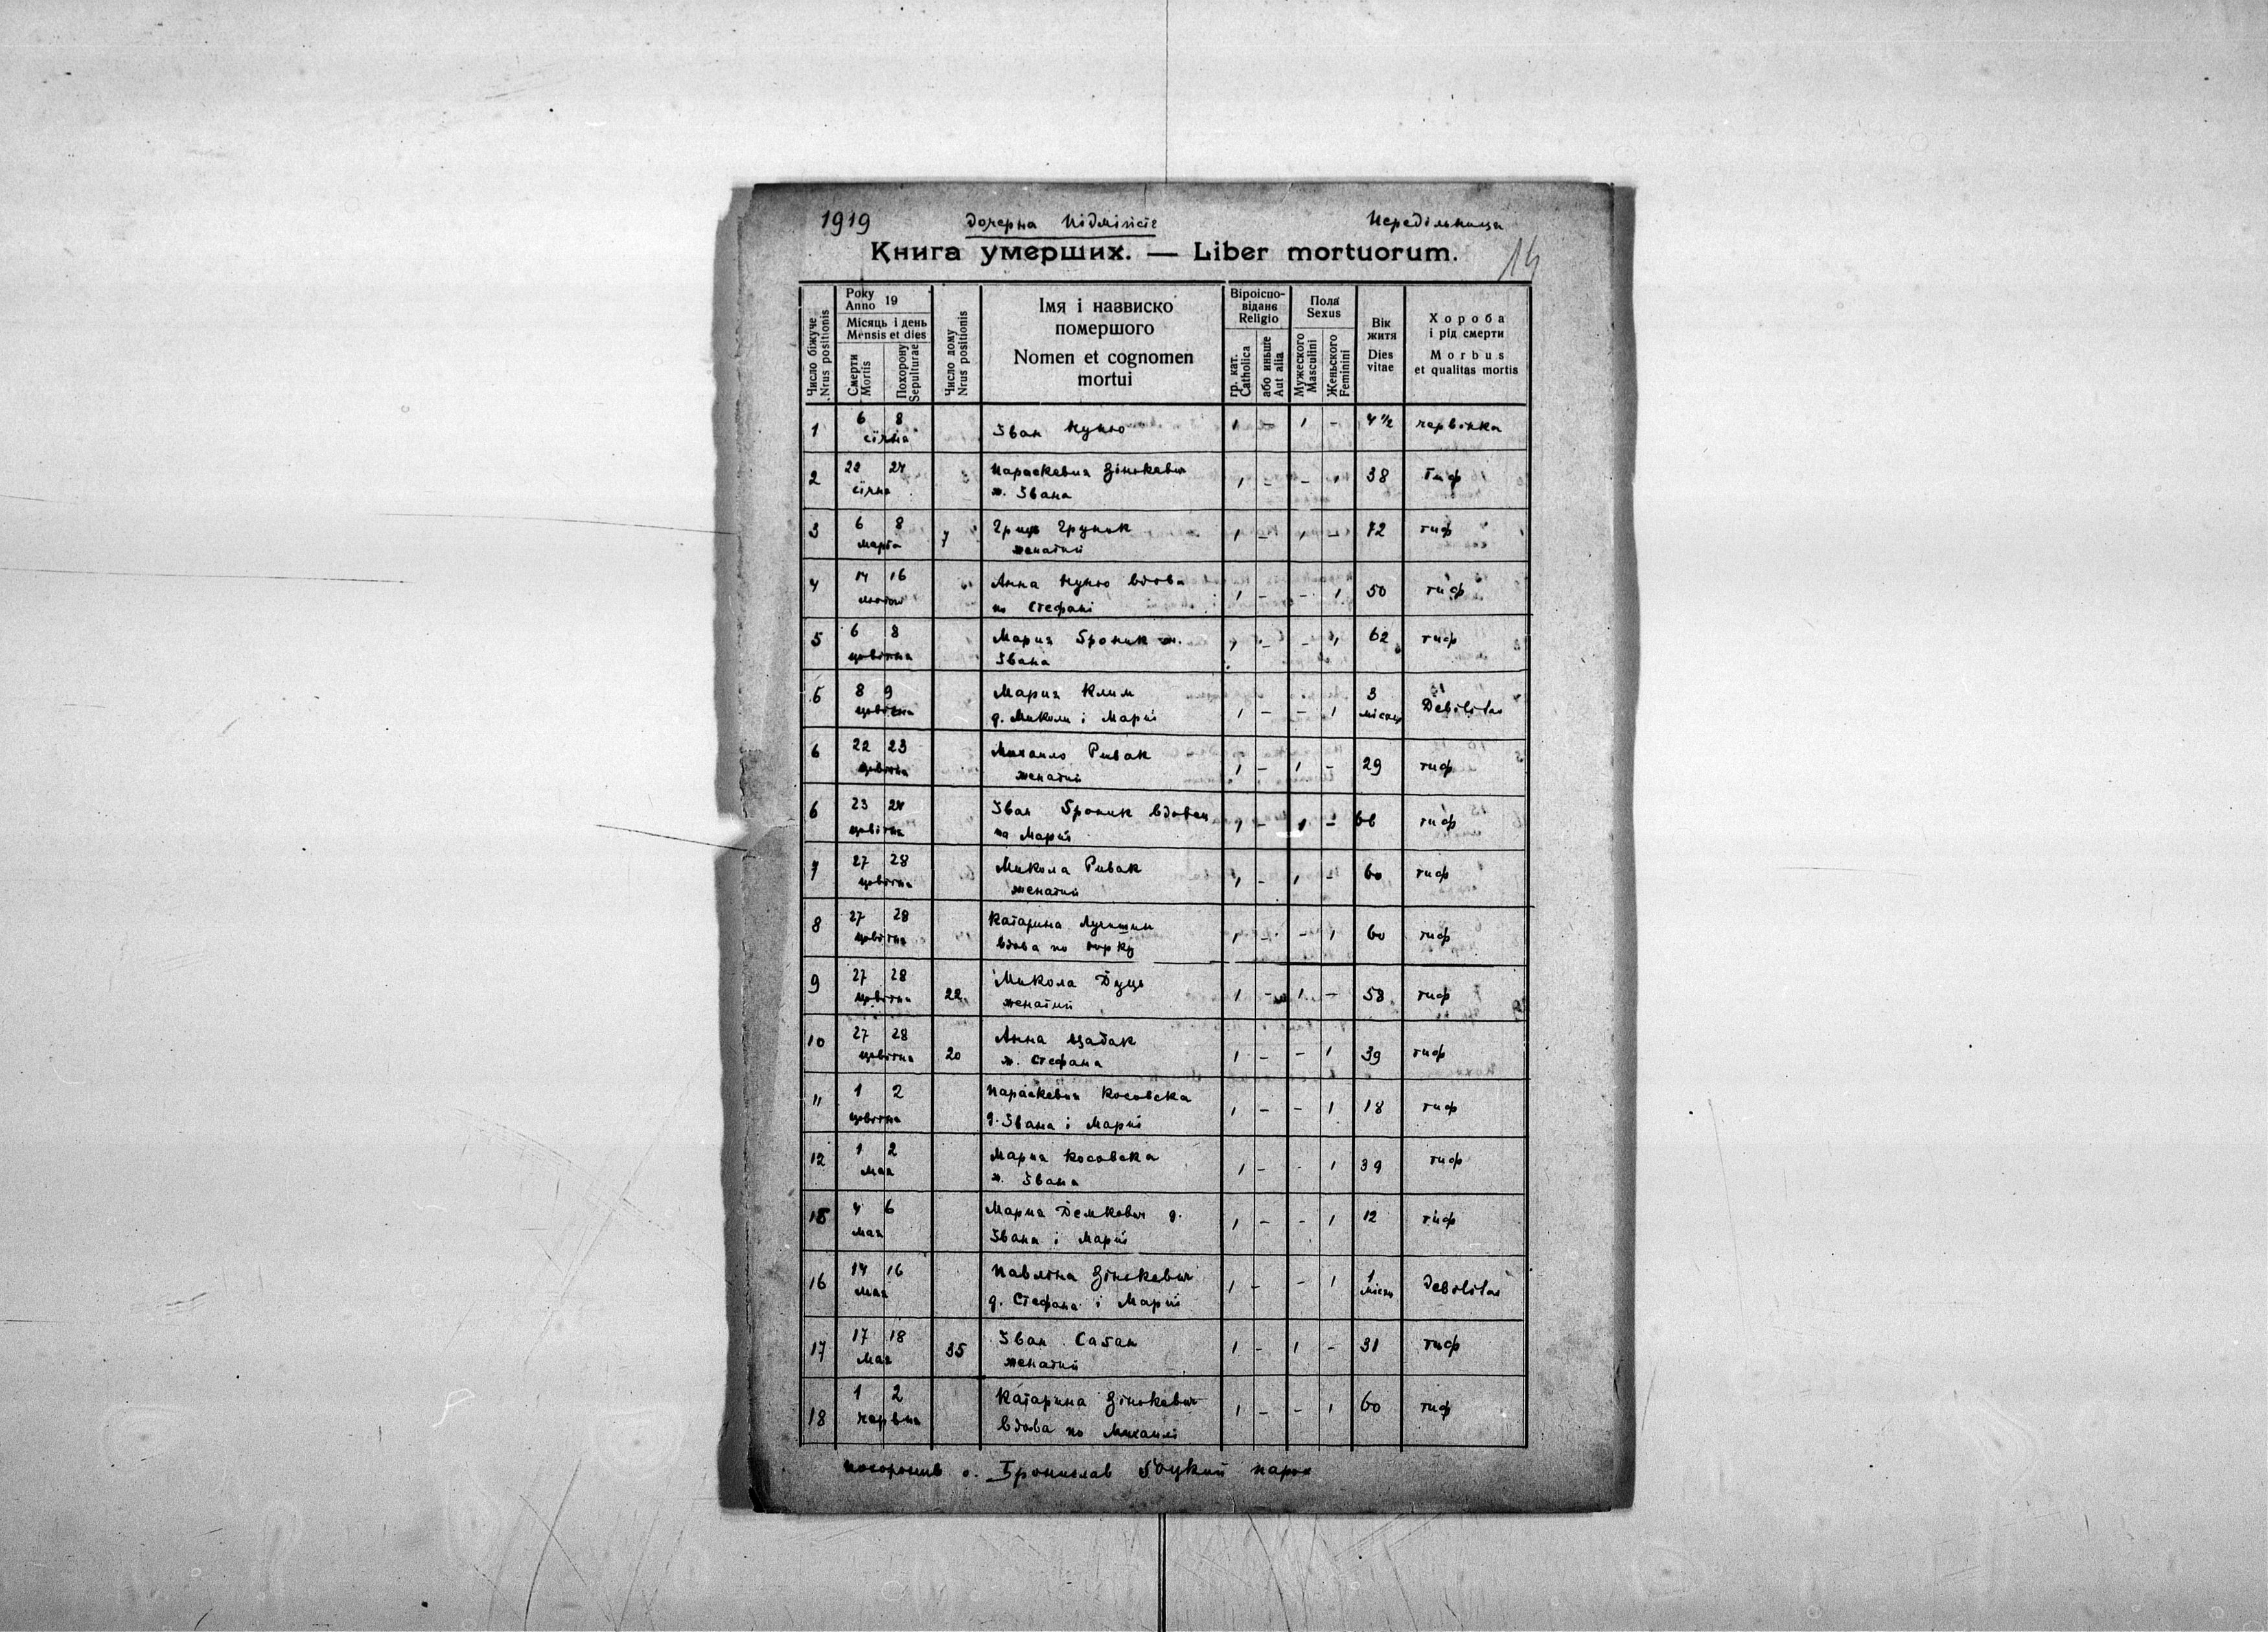 1919 дочерна Підмістє Передільниця
Книга умерших. — Liber mortuorum.
14
Число біжуче
Nrus positionis
Року
Anno 19
Місяць і день
Mensis et dies
Смерти
Mortis
Похорону
Sepulturae
Число дому
Nrus positionis
Імя і назвиско
помершого
Nomen et cognomen
mortui
Віроіспо-
відане
Religio
гр. кат.
Catholica
або иньше
Aut alia
Пола
Sexus
Мужеского
Masculini
Женьского
Feminini
Вік
житя
Dies
vitae
Хороба
і рід смерти
Morbus
et qualitas mortis
1 6 8 Іван 1 - 1 - 4 1/2 червінка
січня
2 22 24 Параскевия Зінькевич 1 - - 1 38 Тиф
січня ж. Івана
3 6 8 7 Гриць 1 - 1 - 72 тиф
марта женатий
4 14 16 Анна вдова 1 - - 1 50 тиф
по Стефані
5 6 8 Мария Броник ж. 1 - - 1 62 тиф
цвітня Івана
5 8 9 Мария Клим 1 - - 1 3 Debilitas
цвітня д. Миколи і Марії місяці
6 22 23 Михайло Ривак 1 - 1 - 29 тиф
цвітня женатий
6 23 24 Іван Броник вдовец 1 - 1 - 66 тиф
цвітня по Марії
7 27 28 Микола Ривак 1 - 1 - 60 тиф
цвітня женатий
8 27 28 Катарина 1 - - 1 60 тиф
цвітня вдова по
9 27 28 22 Микола Дуць 1 - 1 - 58 тиф
цвітня женатий
10 27 28 20 Анна 1 - - 1 39 тиф
цвітня ж. Стефана
11 1 2 Параскевия Косовска 1 - - 1 18 тиф
цвітня д. Івана і Марії
12 1 2 Мария Косовска 1 - - 1 39 тиф
мая ж. Івана
15 4 6 Мария Демкович д. 1 - - 1 12 тиф
мая Івана і Марії
16 14 16 Павліна Зінькевич 1 - - 1 1 Debilitas
мая д. Стефана і Марії місяць
17 17 18 35 Іван Сабан 1 - 1 - 31 тиф
мая женатий
18 1 2 Катарина Зінькевич 1 - - 1 60 тиф
червня вдова по Михайлі
похоронив о. Броніслав Боцкий парох